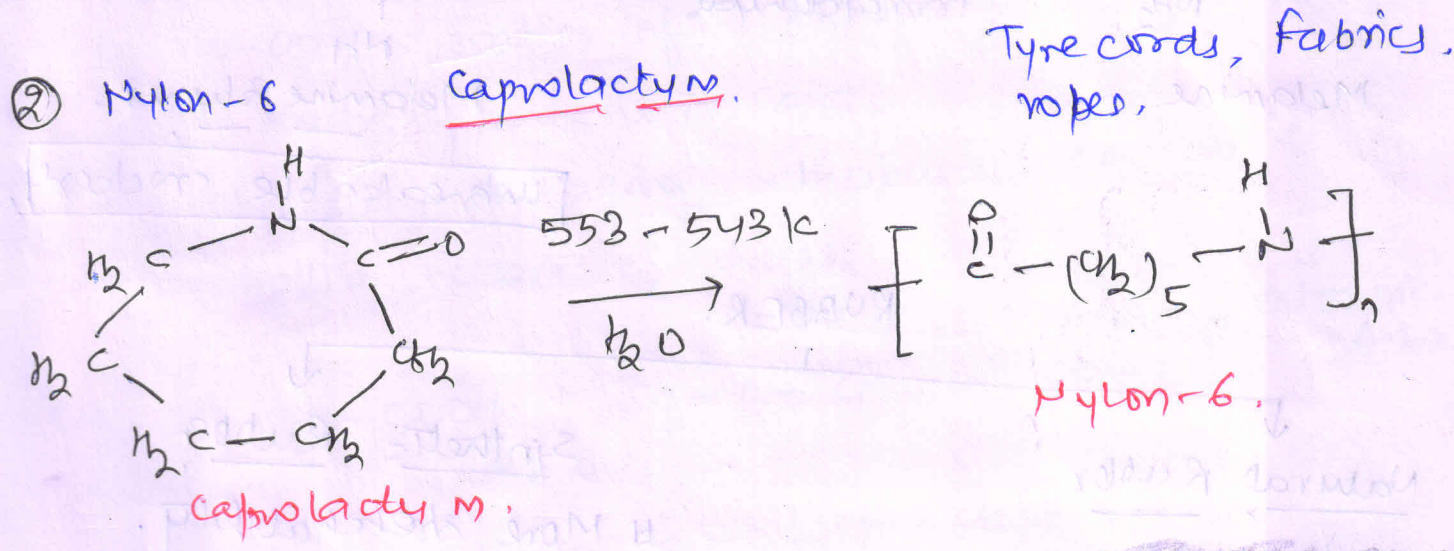 ② Nylon-6 Caprolactym. Tyre cords, Fabrics,
ropes.
H
N
H2C C=O
H2C CH2
H2C-CH2
Caprolactym.
553-543K
H2O
[ O H ]
[ C-(CH2)5-N ]n
Nylon-6.